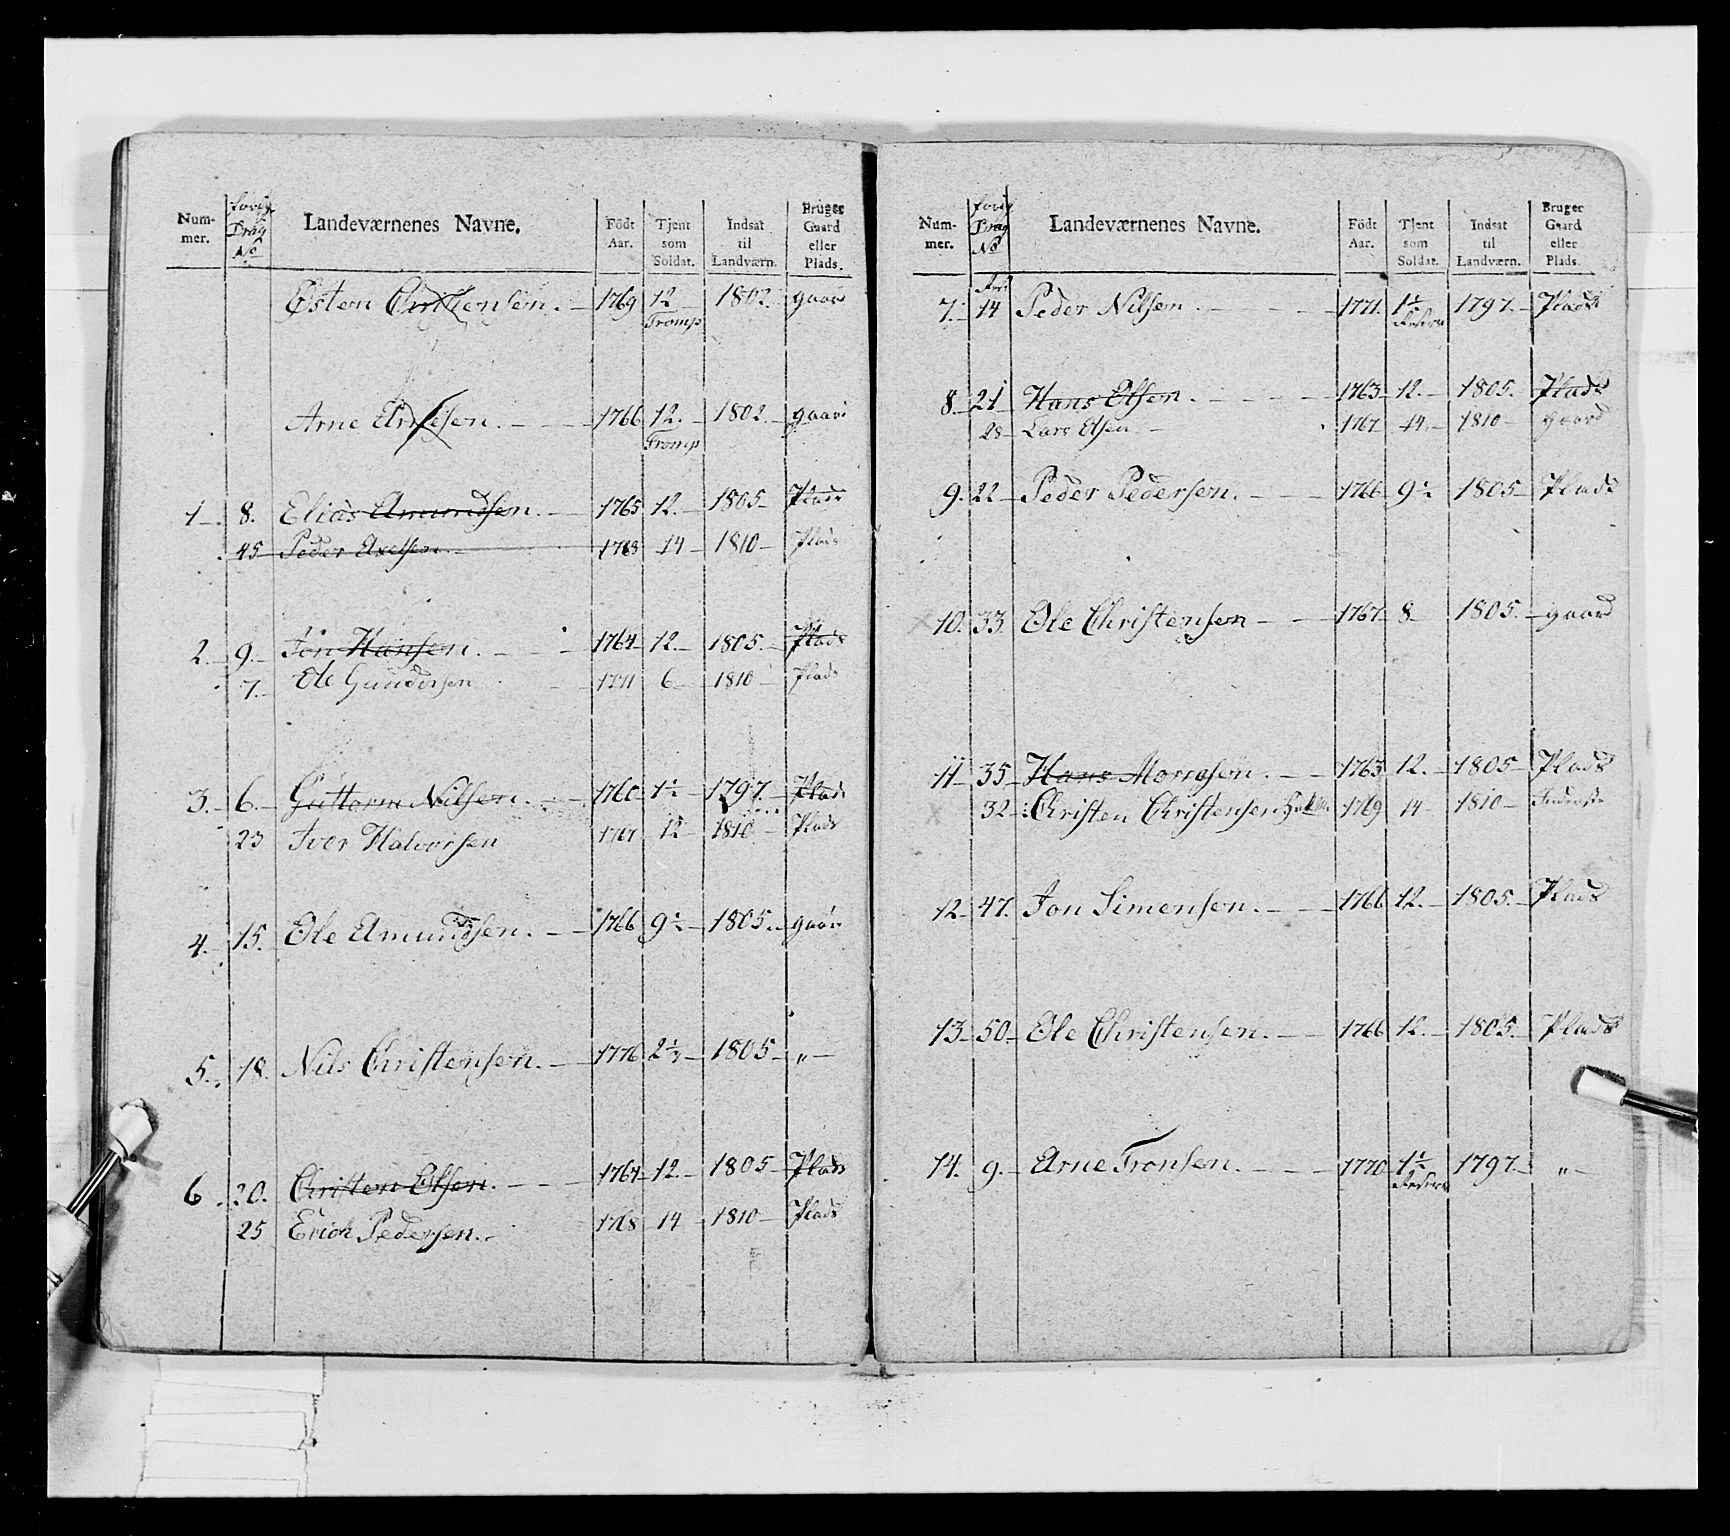 Num-mer. Forrig Drag No Landeværnenes Navne. Födt Aar. Tjent som Soldat. Indsat til Landværn. Bruger Gaard eller Plads.
Östen Christensen. 1769 12 1802 gaard
Tromp
Arne 1766 12. 1802. gaard
Tromp
1. 8. Elias Amundsen. 1765 12. 1805 Plads
45 Peder Axelsen 1768 14 1810 Plads
2. 9. Jon Hansen. 1764 12. 1805. Plads
7. Ole Gundersen 1771 6 1810 Plads
3. 6. Guttorm Nilsen. 1760 1½ 1797. Plads
23 Iver Halvorsen 1767 12 1810 Plads
4. 15. Ole Amundsen. 1766 9½ 1805. gaard
5. 18. Nils Christensen. 1776 2½ 1805 "
6. 20. Christen Olsen. 1767 12. 1805 Plads
25 Erich Pedersen. 1768 14 1810 Plads
Num-mer. Forrig Drag No Landeværnenes Navne. Födt Aar. Tjent som Soldat. Indsat til Landværn. Bruger Gaard eller Plads.
7. 14 Peder Nilsen. 1771. 1½ 1797. Plads
8. 21 Hans Olsen. 1763 12. 1805. Plads
28 Lars Olsen 1767 14. 1810 gaard
9. 22 Peder Pedersen. 1766 9½ 1805 Plads
10. 33 Ole Christensen 1767 8 1805. gaard
11 35 Hans 1763 12. 1805 Plads
32 Christen Christensen 1769 14 1810
12 47. Jon Simensen. 1766 12. 1805. Plads
13 50 Ole Christensen. 1766 12. 1805. Plads
14. 9. Arne Tronsen. 1770 1½ 1797 "